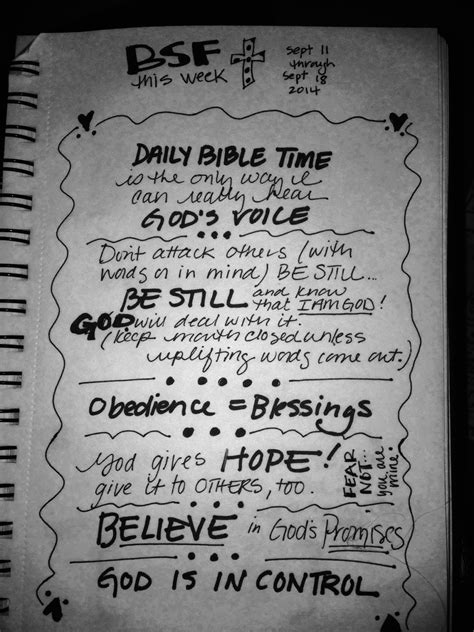 BSF
this week
Sept 11
through
Sept 18
2014
DAILY BIBLE TIME
is the only way I
can really hear
GOD'S VOICE
Don't attack others (with
words or in mind) BE STILL...
BE STILL and know
that I AM GOD!
GOD will deal with it.
(keep mouth closed unless
uplifting words come out.)
Obedience = Blessings
God gives HOPE!
give it to OTHERS, too.
FEAR
NOT...
you are
mine!
BELIEVE in God's Promises
GOD IS IN CONTROL